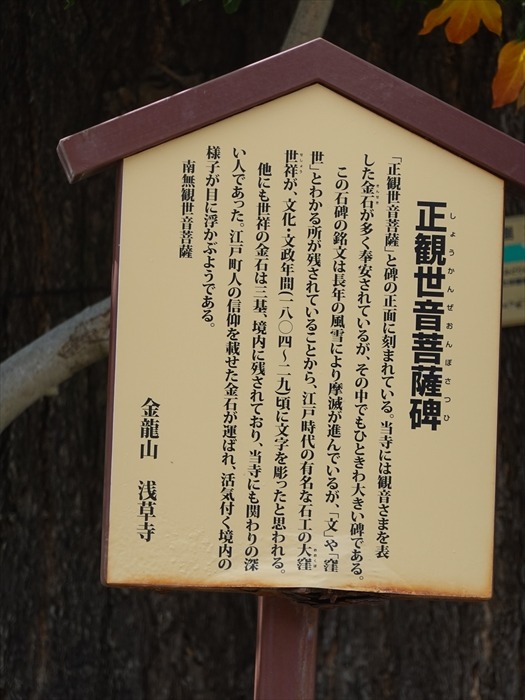 正観世音菩薩碑
しょうかんぜおんぼさつひ
「正観世音菩薩」と碑の正面に刻まれている。当寺には観音さまを表
した金石が多く奉安されているが、その中でもひときわ大きい碑である。
この石碑の銘文は長年の風雪により摩滅が進んでいるが、「文」や「窪
世」とわかる所が残されていることから、江戸時代の有名な石工の大窪
世祥が、文化・文政年間(一八〇四～二九)頃に文字を彫ったと思われる。
他にも世祥の金石は三基、境内に残されており、当寺にも関わりの深
い人であった。江戸町人の信仰を載せた金石が運ばれ、活気付く境内の
様子が目に浮かぶようである。
南無観世音菩薩
金龍山 浅草寺